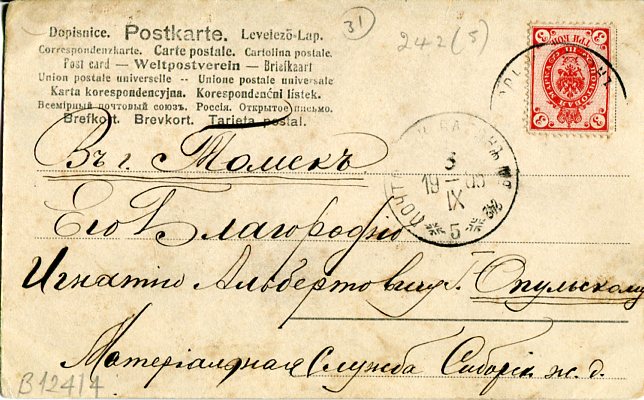 31
242(5)
Dopisnice. Postkarte. Levelező-Lap.
Correspondenzkarte. Carte postale. Cartolina postale.
Post card — Weltpostverein — Briefkaart
Union postale universelle -- Unione postale universale
Karta korespondencyjna. Korespondenčni listek.
Всемірный почтовый союзъ. Россія. Открытое письмо.
Brefkort. Brevkort. Tarjeta postal.
ТРИ КОП.
3 3
3 3
3
19 05
IX
5
Въ г. Томскъ
Его Благородію
Игнатію Альбертовичу Г. Опульскому
Матеріальная Служба Сибирск. ж. д.
B124/4